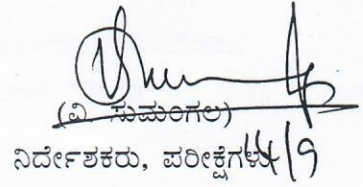 (ವಿ. ಸುಮಂಗಲ)
ನಿರ್ದೇಶಕರು, ಪರೀಕ್ಷೆಗಳು 14/9